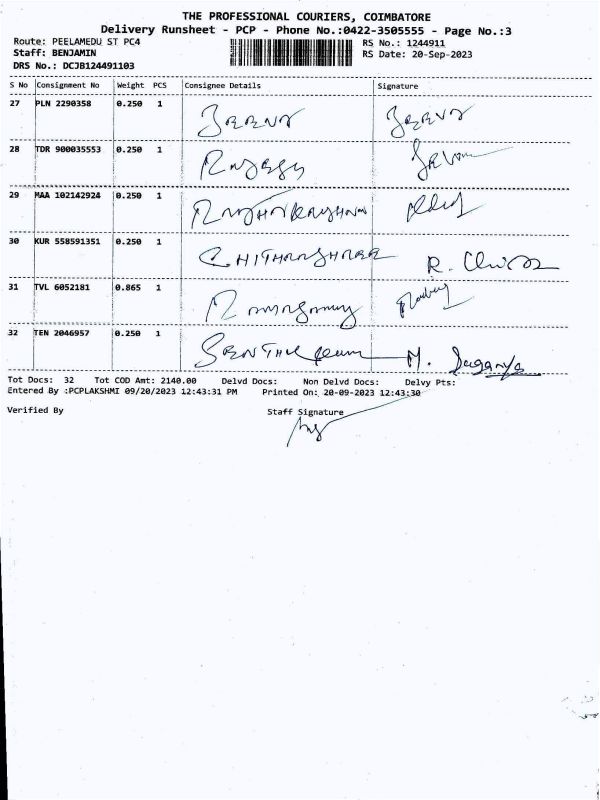 THE PROFESSIONAL COURIERS, COIMBATORE
Delivery Runsheet - PCP - Phone No.:0422-3505555 - Page No.:3
Route: PEELAMEDU ST PC4 RS No.: 1244911
Staff: BENJAMIN RS Date: 20-Sep-2023
DRS No.: DCJB124491103
S No Consignment No Weight PCS Consignee Details Signature
27 PLN 2290358 0.250 1
28 TDR 900035553 0.250 1 RAJESH
29 MAA 102142924 0.250 1
30 KUR 558591351 0.250 1 R.
31 TVL 6052181 0.865 1
32 TEN 2046957 0.250 1 M.
Tot Docs: 32 Tot COD Amt: 2140.00 Delvd Docs: Non Delvd Docs: Delvy Pts:
Entered By :PCPLAKSHMI 09/20/2023 12:43:31 PM Printed On: 20-09-2023 12:43:30
Verified By Staff Signature